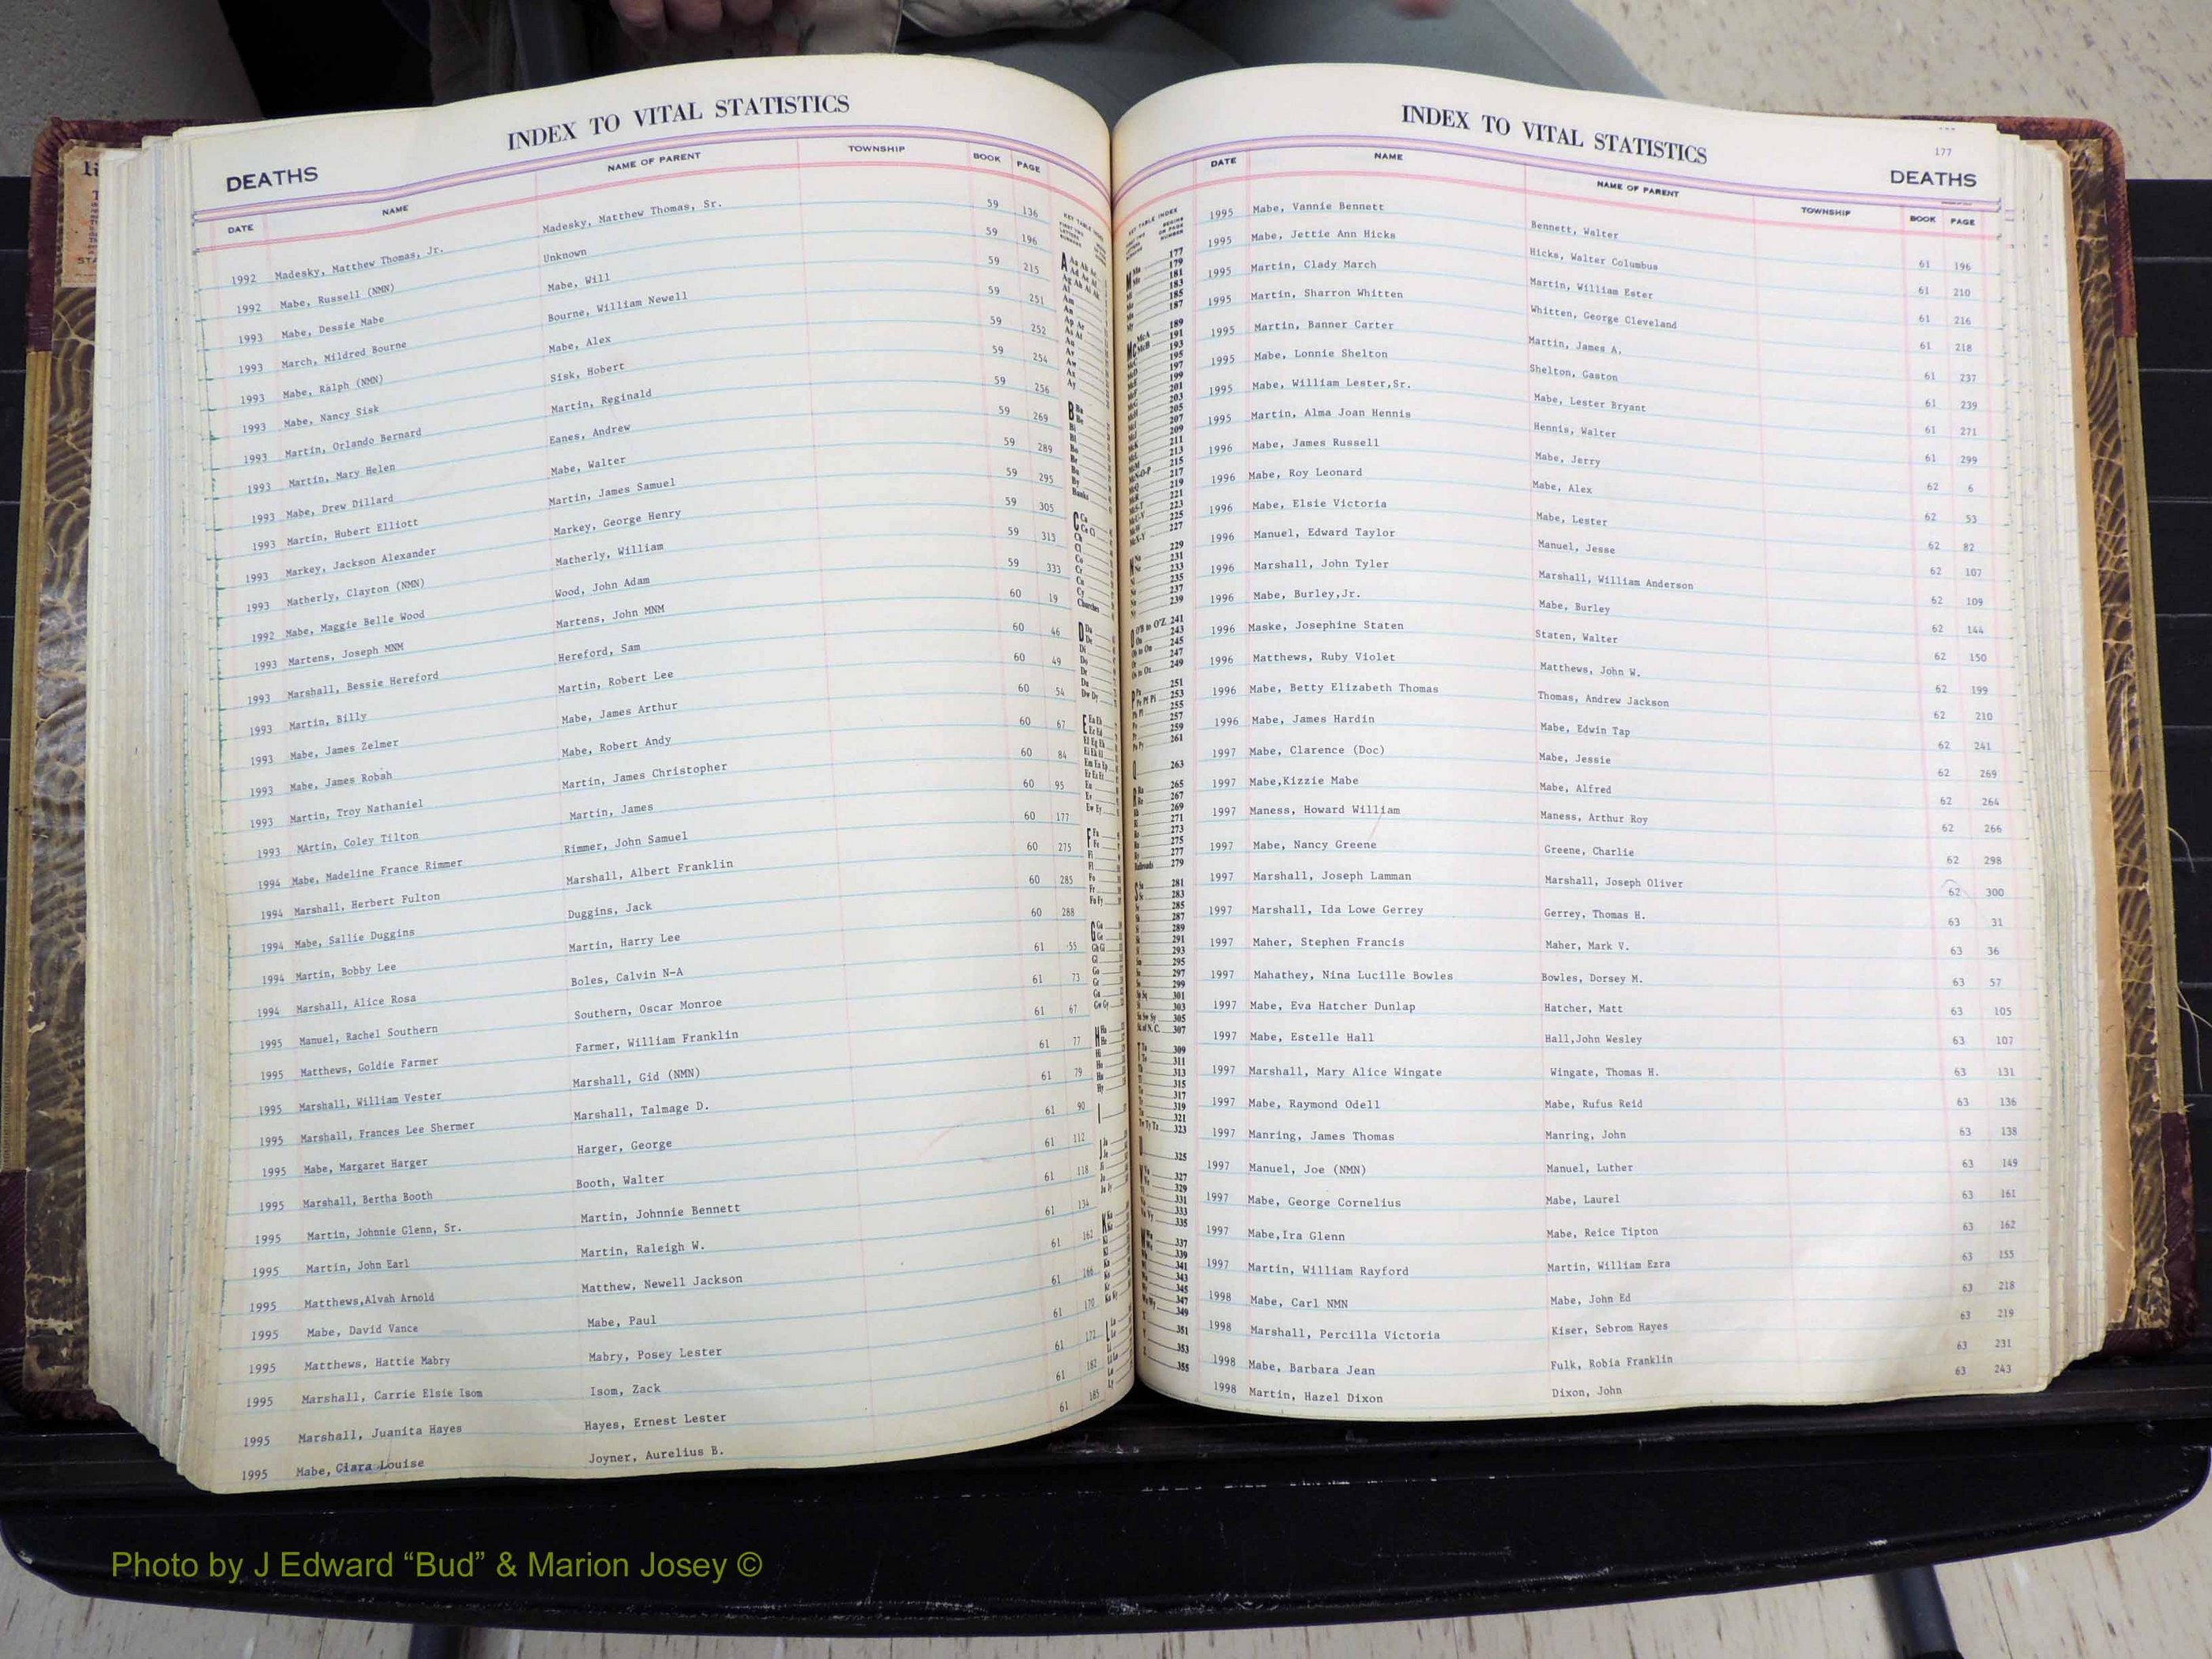 INDEX TO VITAL STATISTICS
DEATHS
DATE NAME NAME OF PARENT TOWNSHIP BOOK PAGE
1992 Madesky, Matthew Thomas, Jr. Madesky, Matthew Thomas, Sr. 59 136
1992 Mabe, Russell (NMN) Unknown 59 196
1993 Mabe, Dessie Mabe Mabe, Will 59 215
1993 March, Mildred Bourne Bourne, William Newell 59 251
1993 Mabe, Ralph (NMN) Mabe, Alex 59 252
1993 Mabe, Nancy Sisk Sisk, Hobert 59 254
1993 Martin, Orlando Bernard Martin, Reginald 59 256
1993 Martin, Mary Helen Eanes, Andrew 59 269
1993 Mabe, Drew Dillard Mabe, Walter 59 289
1993 Martin, Hubert Elliott Martin, James Samuel 59 295
1993 Markey, Jackson Alexander Markey, George Henry 59 305
1993 Matherly, Clayton (NMN) Matherly, William 59 315
1992 Mabe, Maggie Belle Wood Wood, John Adam 59 333
1993 Martens, Joseph MNM Martens, John MNM 60 19
1993 Marshall, Bessie Hereford Hereford, Sam 60 46
1993 Martin, Billy Martin, Robert Lee 60 49
1993 Mabe, James Zelmer Mabe, James Arthur 60 54
1993 Mabe, James Robah Mabe, Robert Andy 60 67
1993 Martin, Troy Nathaniel Martin, James Christopher 60 84
1993 MArtin, Coley Tilton Martin, James 60 95
1994 Mabe, Madeline France Rimmer Rimmer, John Samuel 60 177
1994 Marshall, Herbert Fulton Marshall, Albert Franklin 60 275
1994 Mabe, Sallie Duggins Duggins, Jack 60 285
1994 Martin, Bobby Lee Martin, Harry Lee 60 288
1994 Marshall, Alice Rosa Boles, Calvin N-A 61 55
1995 Manuel, Rachel Southern Southern, Oscar Monroe 61 73
1995 Matthews, Goldie Farmer Farmer, William Franklin 61 67
1995 Marshall, William Vester Marshall, Gid (NMN) 61 77
1995 Marshall, Frances Lee Shermer Marshall, Talmage D. 61 79
1995 Mabe, Margaret Harger Harger, George 61 90
1995 Marshall, Bertha Booth Booth, Walter 61 112
1995 Martin, Johnnie Glenn, Sr. Martin, Johnnie Bennett 61 118
1995 Martin, John Earl Martin, Raleigh W. 61 134
1995 Matthews,Alvah Arnold Matthew, Newell Jackson 61 162
1995 Mabe, David Vance Mabe, Paul 61 166
1995 Matthews, Hattie Mabry Mabry, Posey Lester 61 170
1995 Marshall, Carrie Elsie Isom Isom, Zack 61 172
1995 Marshall, Juanita Hayes Hayes, Ernest Lester 61 182
1995 Mabe, Clara Louise Joyner, Aurelius B. 61 185
INDEX TO VITAL STATISTICS
177
DEATHS
DATE NAME NAME OF PARENT TOWNSHIP BOOK PAGE
1995 Mabe, Vannie Bennett Bennett, Walter 61 196
1995 Mabe, Jettie Ann Hicks Hicks, Walter Columbus 61 210
1995 Martin, Clady March Martin, William Ester 61 216
1995 Martin, Sharron Whitten Whitten, George Cleveland 61 218
1995 Martin, Banner Carter Martin, James A. 61 237
1995 Mabe, Lonnie Shelton Shelton, Gaston 61 239
1995 Mabe, William Lester,Sr. Mabe, Lester Bryant 61 271
1995 Martin, Alma Joan Hennis Hennis, Walter 61 299
1996 Mabe, James Russell Mabe, Jerry 62 6
1996 Mabe, Roy Leonard Mabe, Alex 62 53
1996 Mabe, Elsie Victoria Mabe, Lester 62 82
1996 Manuel, Edward Taylor Manuel, Jesse 62 107
1996 Marshall, John Tyler Marshall, William Anderson 62 109
1996 Mabe, Burley,Jr. Mabe, Burley 62 144
1996 Maske, Josephine Staten Staten, Walter 62 150
1996 Matthews, Ruby Violet Matthews, John W. 62 199
1996 Mabe, Betty Elizabeth Thomas Thomas, Andrew Jackson 62 210
1996 Mabe, James Hardin Mabe, Edwin Tap 62 241
1997 Mabe, Clarence (Doc) Mabe, Jessie 62 269
1997 Mabe,Kizzie Mabe Mabe, Alfred 62 264
1997 Maness, Howard William Maness, Arthur Roy 62 266
1997 Mabe, Nancy Greene Greene, Charlie 62 298
1997 Marshall, Joseph Lamman Marshall, Joseph Oliver 62 300
1997 Marshall, Ida Lowe Gerrey Gerrey, Thomas H. 63 31
1997 Maher, Stephen Francis Maher, Mark V. 63 36
1997 Mahathey, Nina Lucille Bowles Bowles, Dorsey M. 63 57
1997 Mabe, Eva Hatcher Dunlap Hatcher, Matt 63 105
1997 Mabe, Estelle Hall Hall,John Wesley 63 107
1997 Marshall, Mary Alice Wingate Wingate, Thomas H. 63 131
1997 Mabe, Raymond Odell Mabe, Rufus Reid 63 136
1997 Manring, James Thomas Manring, John 63 138
1997 Manuel, Joe (NMN) Manuel, Luther 63 149
1997 Mabe, George Cornelius Mabe, Laurel 63 161
1997 Mabe,Ira Glenn Mabe, Reice Tipton 63 162
1997 Martin, William Rayford Martin, William Ezra 63 155
1998 Mabe, Carl NMN Mabe, John Ed 63 218
1998 Marshall, Percilla Victoria Kiser, Sebrom Hayes 63 219
1998 Mabe, Barbara Jean Fulk, Robia Franklin 63 231
1998 Martin, Hazel Dixon Dixon, John 63 243
Photo by J Edward “Bud” & Marion Josey ©